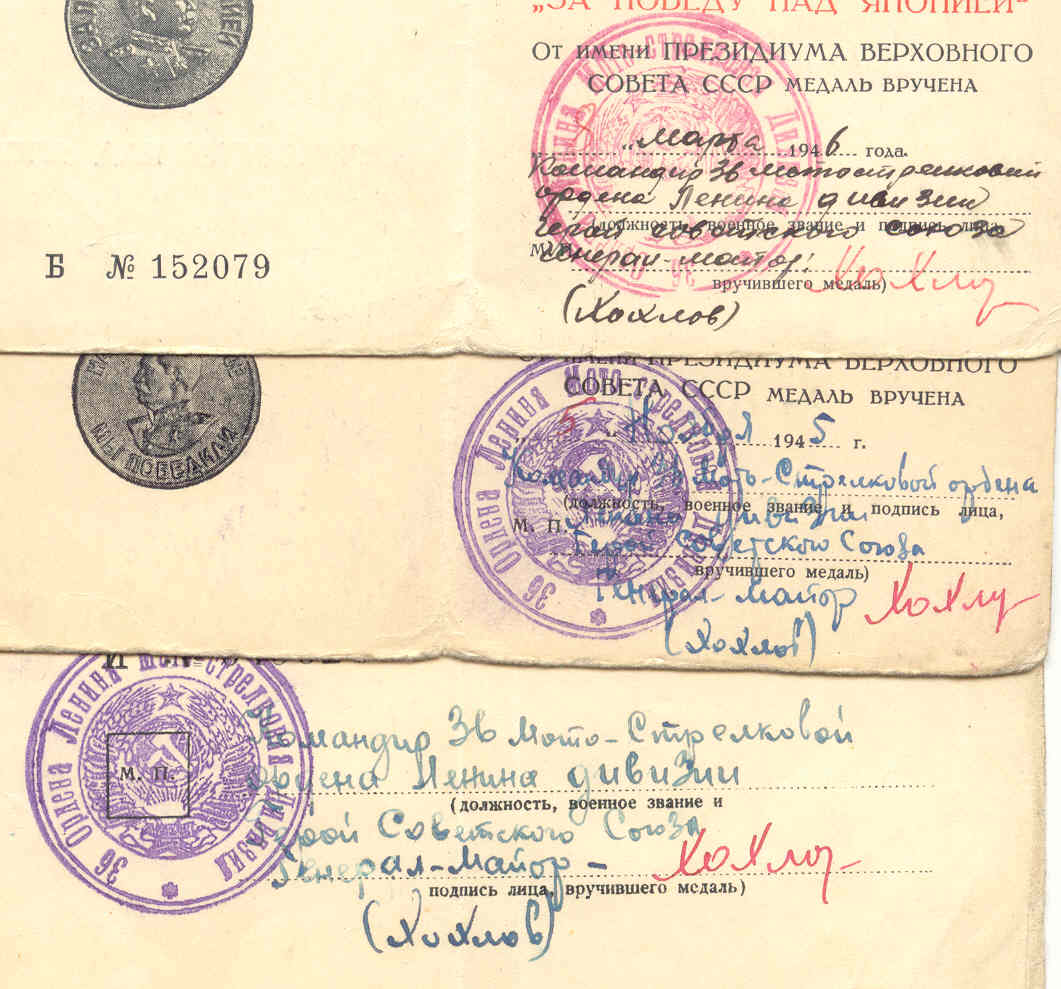 ЗА ПО ... ИЕЙ
Б № 152079
„ЗА ПОБЕДУ НАД ЯПОНИЕЙ“
От имени ПРЕЗИДИУМА ВЕРХОВНОГО
СОВЕТА СССР МЕДАЛЬ ВРУЧЕНА
„ марта 1946 года.
Командир 36 мотострелковой
ордена Ленина дивизии
(должность, военное звание и подпись лица,
Герой советского союза
М.П.
генерал-майор: Хохлов
вручившего медаль)
(Хохлов)
36 Ордена Ленина Мото-стрелковая Дивизия
МЫ ПОБЕДИЛИ
От имени ПРЕЗИДИУМА ВЕРХОВНОГО
СОВЕТА СССР МЕДАЛЬ ВРУЧЕНА
„5“ Ноября 1945 г.
Командир 36 Мото-Стрелковой ордена
(должность, военное звание и подпись лица,
М. П. Ленина дивизии
Герой Советского Союза
вручившего медаль)
Генерал-Майор Хохлов
(Хохлов)
36 Ордена Ленина Мото-стрелковая Дивизия
Командир 36 Мото-Стрелковой
М. П.
ордена Ленина дивизии
(должность, военное звание и
Герой Советского Союза
Генерал-Майор – Хохлов
подпись лица, вручившего медаль)
(Хохлов)
36 Ордена Ленина Мото-стрелковая Дивизия